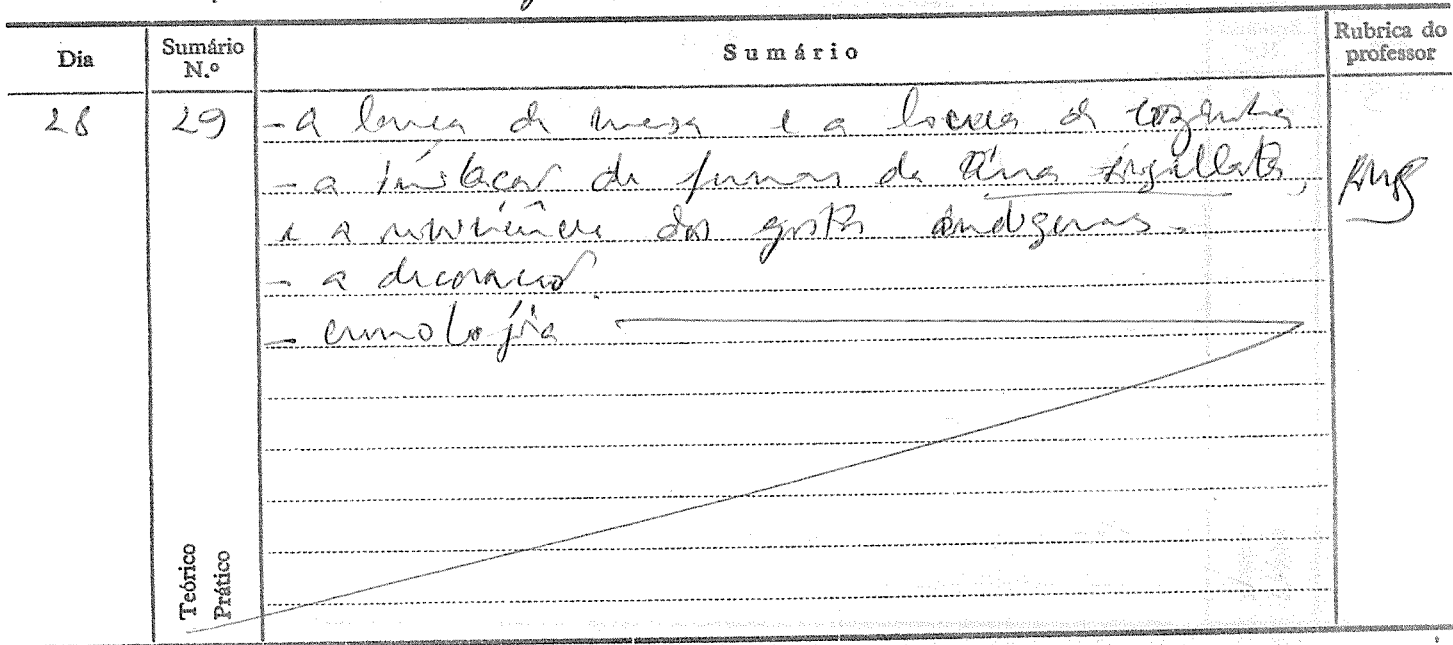 Dia Sumário N.º Sumário Rubrica do professor
28 29 - a louça de mesa e a louça de cozinha
- a imitação de formas da terra sigillata,
e a sobrevivência dos gostos indígenas.
- a decoração.
- cronologia
Teórico
Prático